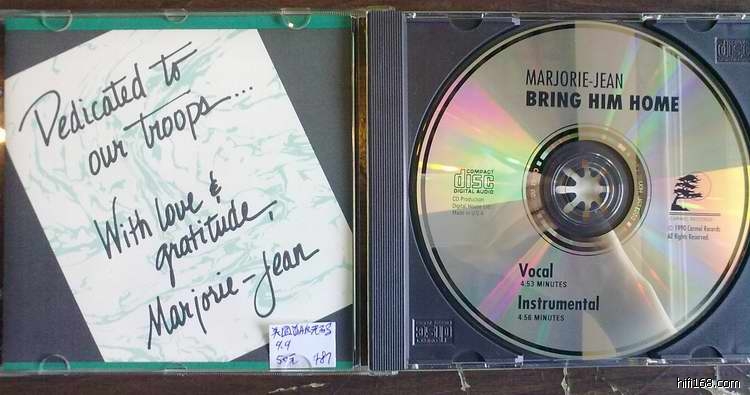 Dedicated to
our troops...
With love &
gratitude,
Marjorie-Jean
美国首版无码
9.9
50元 +87
MARJORIE-JEAN
BRING HIM HOME
COMPACT
disc
DIGITAL AUDIO
CD Production
Digital House Ltd.
Made in U.S.A.
CARMEL RECORDS
© 1990 Carmel Records
All Rights Reserved.
Vocal
4:53 MINUTES
Instrumental
4:56 MINUTES
hifi168.com